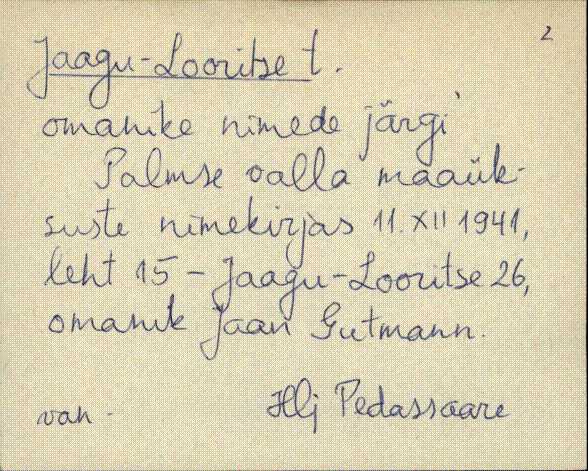 2
Jaagu-Looritse t.
omanike nimede järgi
Palmse valla maaük-
suste nimekirjas 11. XII 1941,
leht 15 - Jaagu-Looritse 26,
omanik Jaan Gutmann.
Hlj Pedassaare
van.